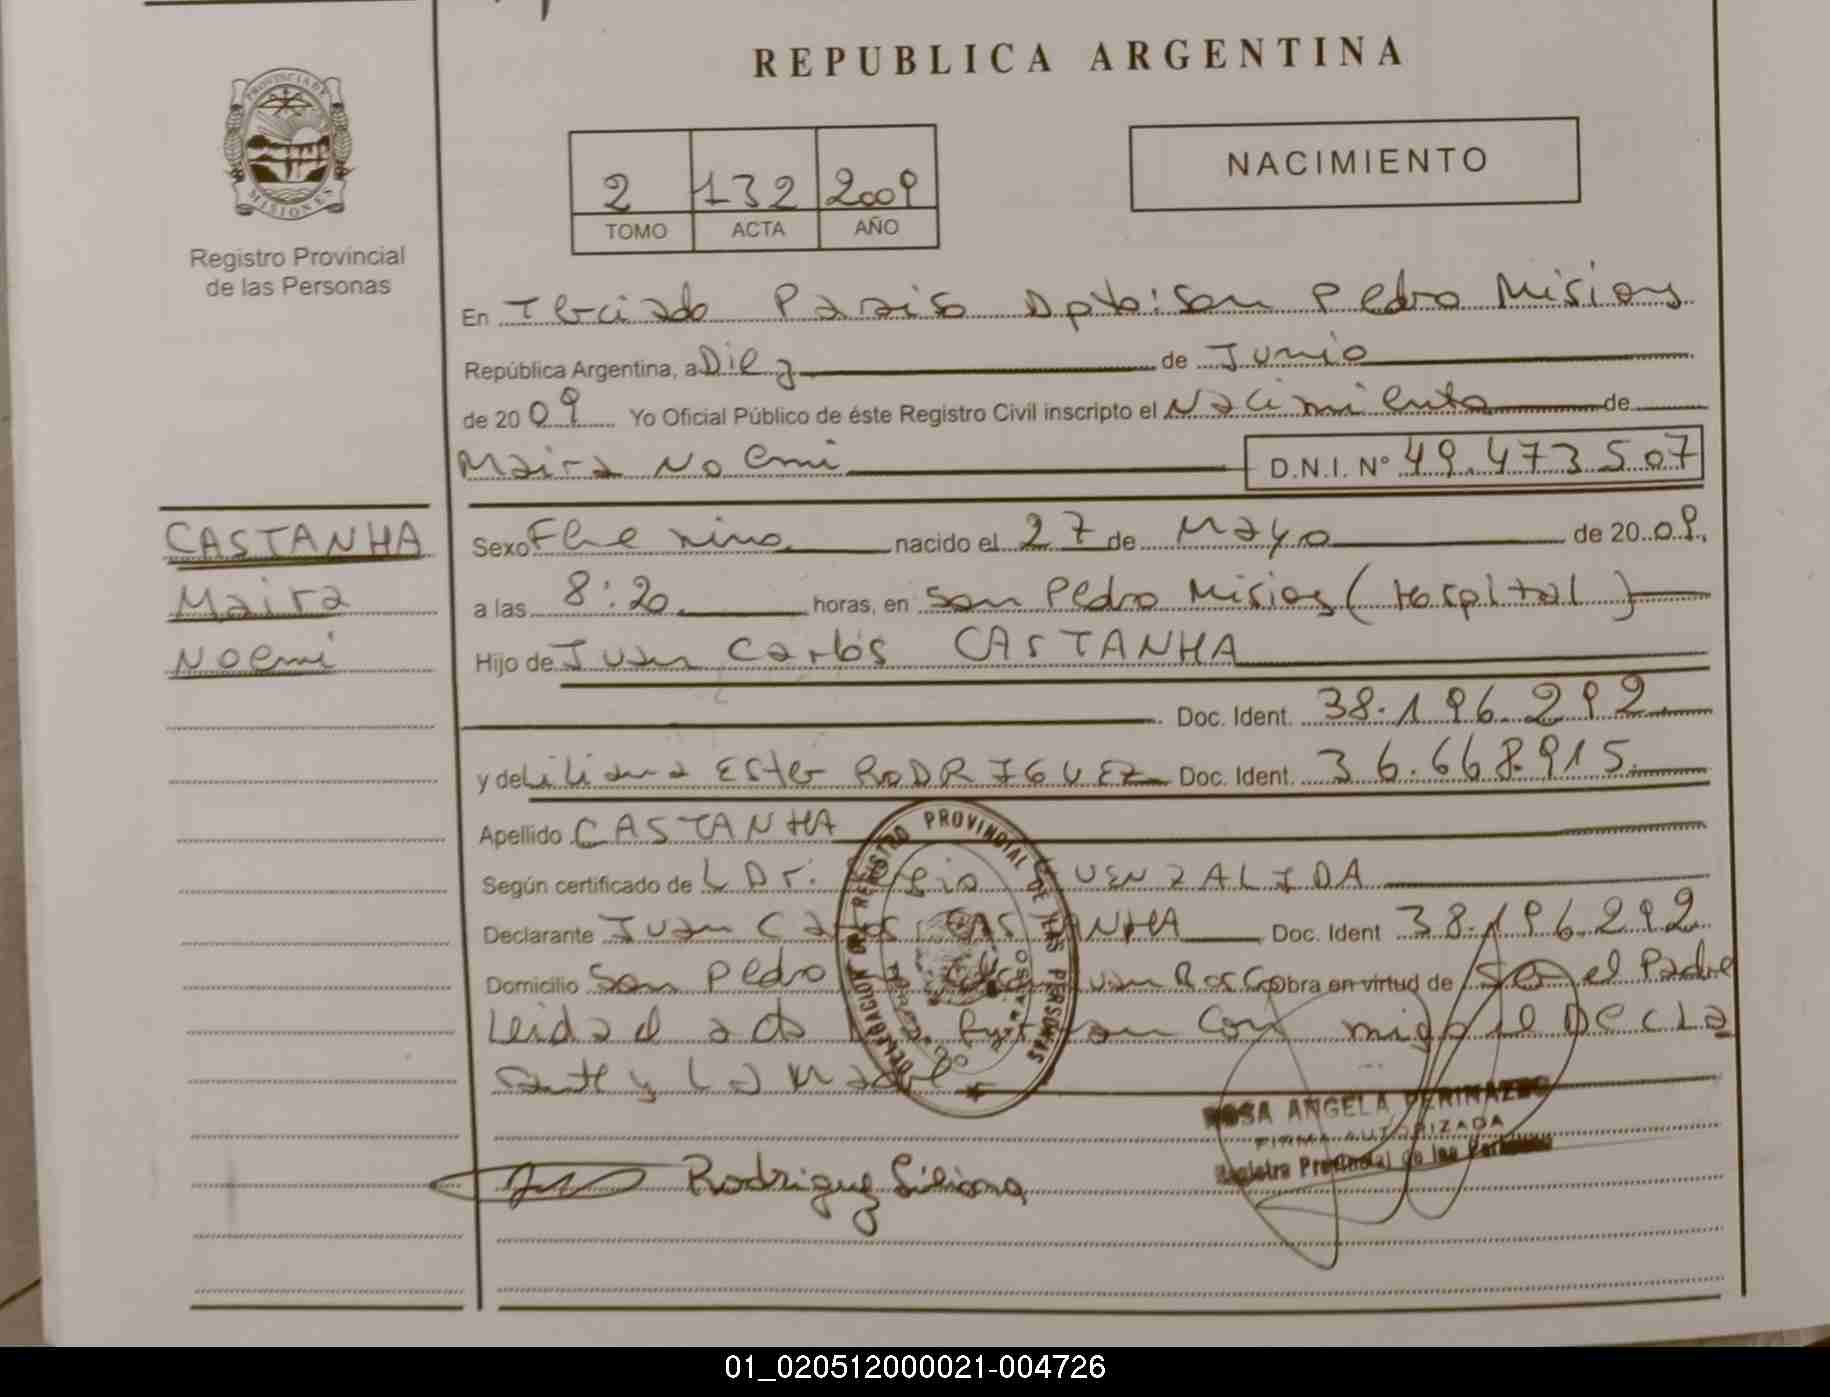 REPUBLICA ARGENTINA
PROVINCIA DE
MISIONES
Registro Provincial
de las Personas
NACIMIENTO
2 132 2009
TOMO ACTA AÑO
En Terciado Paraiso Dpto: San Pedro Misiones
República Argentina, a Diez de Junio
de 2009 Yo Oficial Público de éste Registro Civil inscripto el Nacimiento de
Maira Noemi D.N.I. Nº 49.473507
CASTANHA
Maira
Noemi
Sexo nacido el 27 de Mayo de 2009.
a las 8:20 horas, en San Pedro Misiones (Hospital)
Hijo de Juan Carlos CASTANHA
Doc. Ident. 38.196.292
y de Liliana Ester RODRIGUEZ Doc. Ident. 36.668.915
Apellido CASTANHA
Según certificado de L Dr.
Declarante Juan Carlos CASTANHA Doc. Ident 38.196.292
Domicilio San Pedro obra en virtud de Ser el Padre
Leida el acta con migo el Decla
rante y La Madre
DELEGACION DEL REGISTRO PROVINCIAL DE LAS PERSONAS
Rodriguez Liliana
ROSA ANGELA
FIRMA AUTORIZADA
Registro Provincial de las Personas
01_020512000021-004726